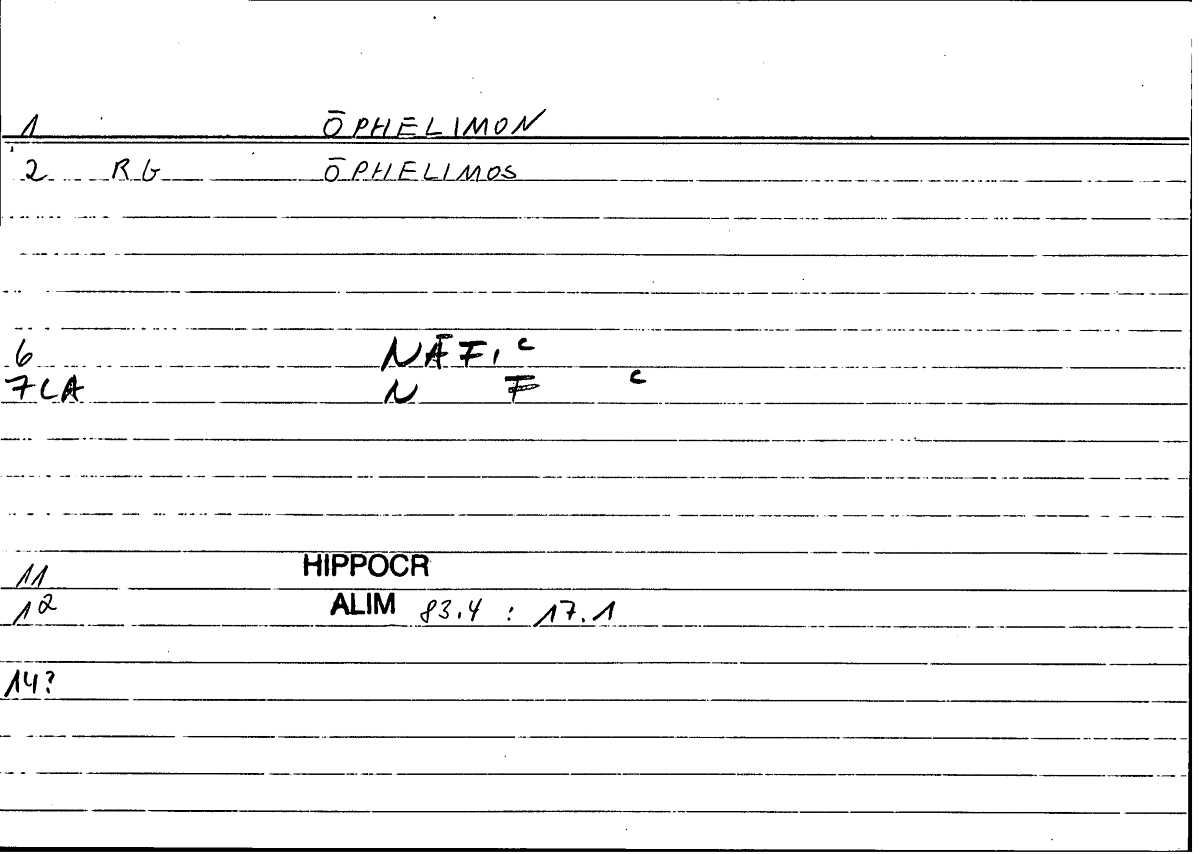 1 ŌPHELIMON
2 RG ŌPHELIMOS
6 NĀFIʿ
7LA N F ʿ
11 HIPPOCR
12 ALIM 83.4 : 17.1
14?